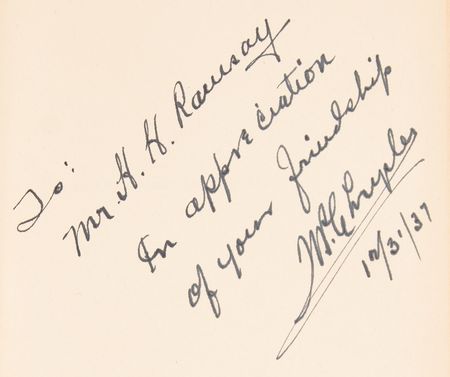 To:
Mr. H. H. Ramsay
In appreciation
of your friendship
W. P. Chrysler
12/31/37